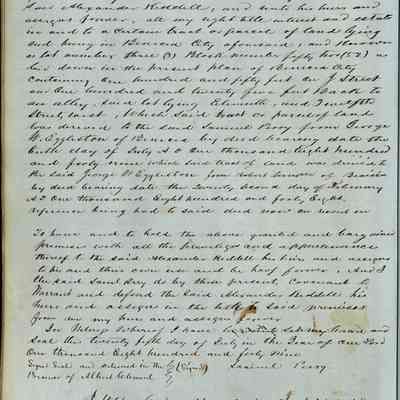 said Alexander Riddell, and unto his heirs and
assigns forever, all my right title interest and estate
in and to a certain tract or parcel of land lying
and being in Benicia City aforesaid, and known
as lot number three (3) Block number fifty two (52) as
laid down on the present plan of Benicia City
Containing One hundred and fifty feet on J Street
and One hundred and twenty five feet Back to
an alley, said lot lying Eleventh and Twelfth
Streets East, Which Said tract or parcel of land
was deeded to the said Samuel Perry from George
W. Eggleston of Benicia by deed bearing date the
day of July A D One thousand Eight hundred
and forty nine which said tract of land was deeded to
the said George W. Eggleston from Robert Semple of Benicia
by deed bearing date the Twenty second day of February
A D One thousand Eight hundred and forty Eight
reference being had to said deed now on record
To have and to hold the above granted and bargained
premises with all the privileges and appurtenances
thereof to the said Alexander Riddell his heirs and assigns
to his and their own use and be hoof forever, And I
the said Saml Perry do by these presents, Covenant to
Warrant and defend the Said Alexander Riddell his
heirs and assigns in the title to Said premises
from me my heirs and assigns forever
In Witness Whereof I have hereunto set my hand and
Seal the twenty fifth day of July in the Year of our Lord
One thousand Eight hundred and forty Nine
Signed Seal and delivered in the (Signed)
Presence of Samuel Perry